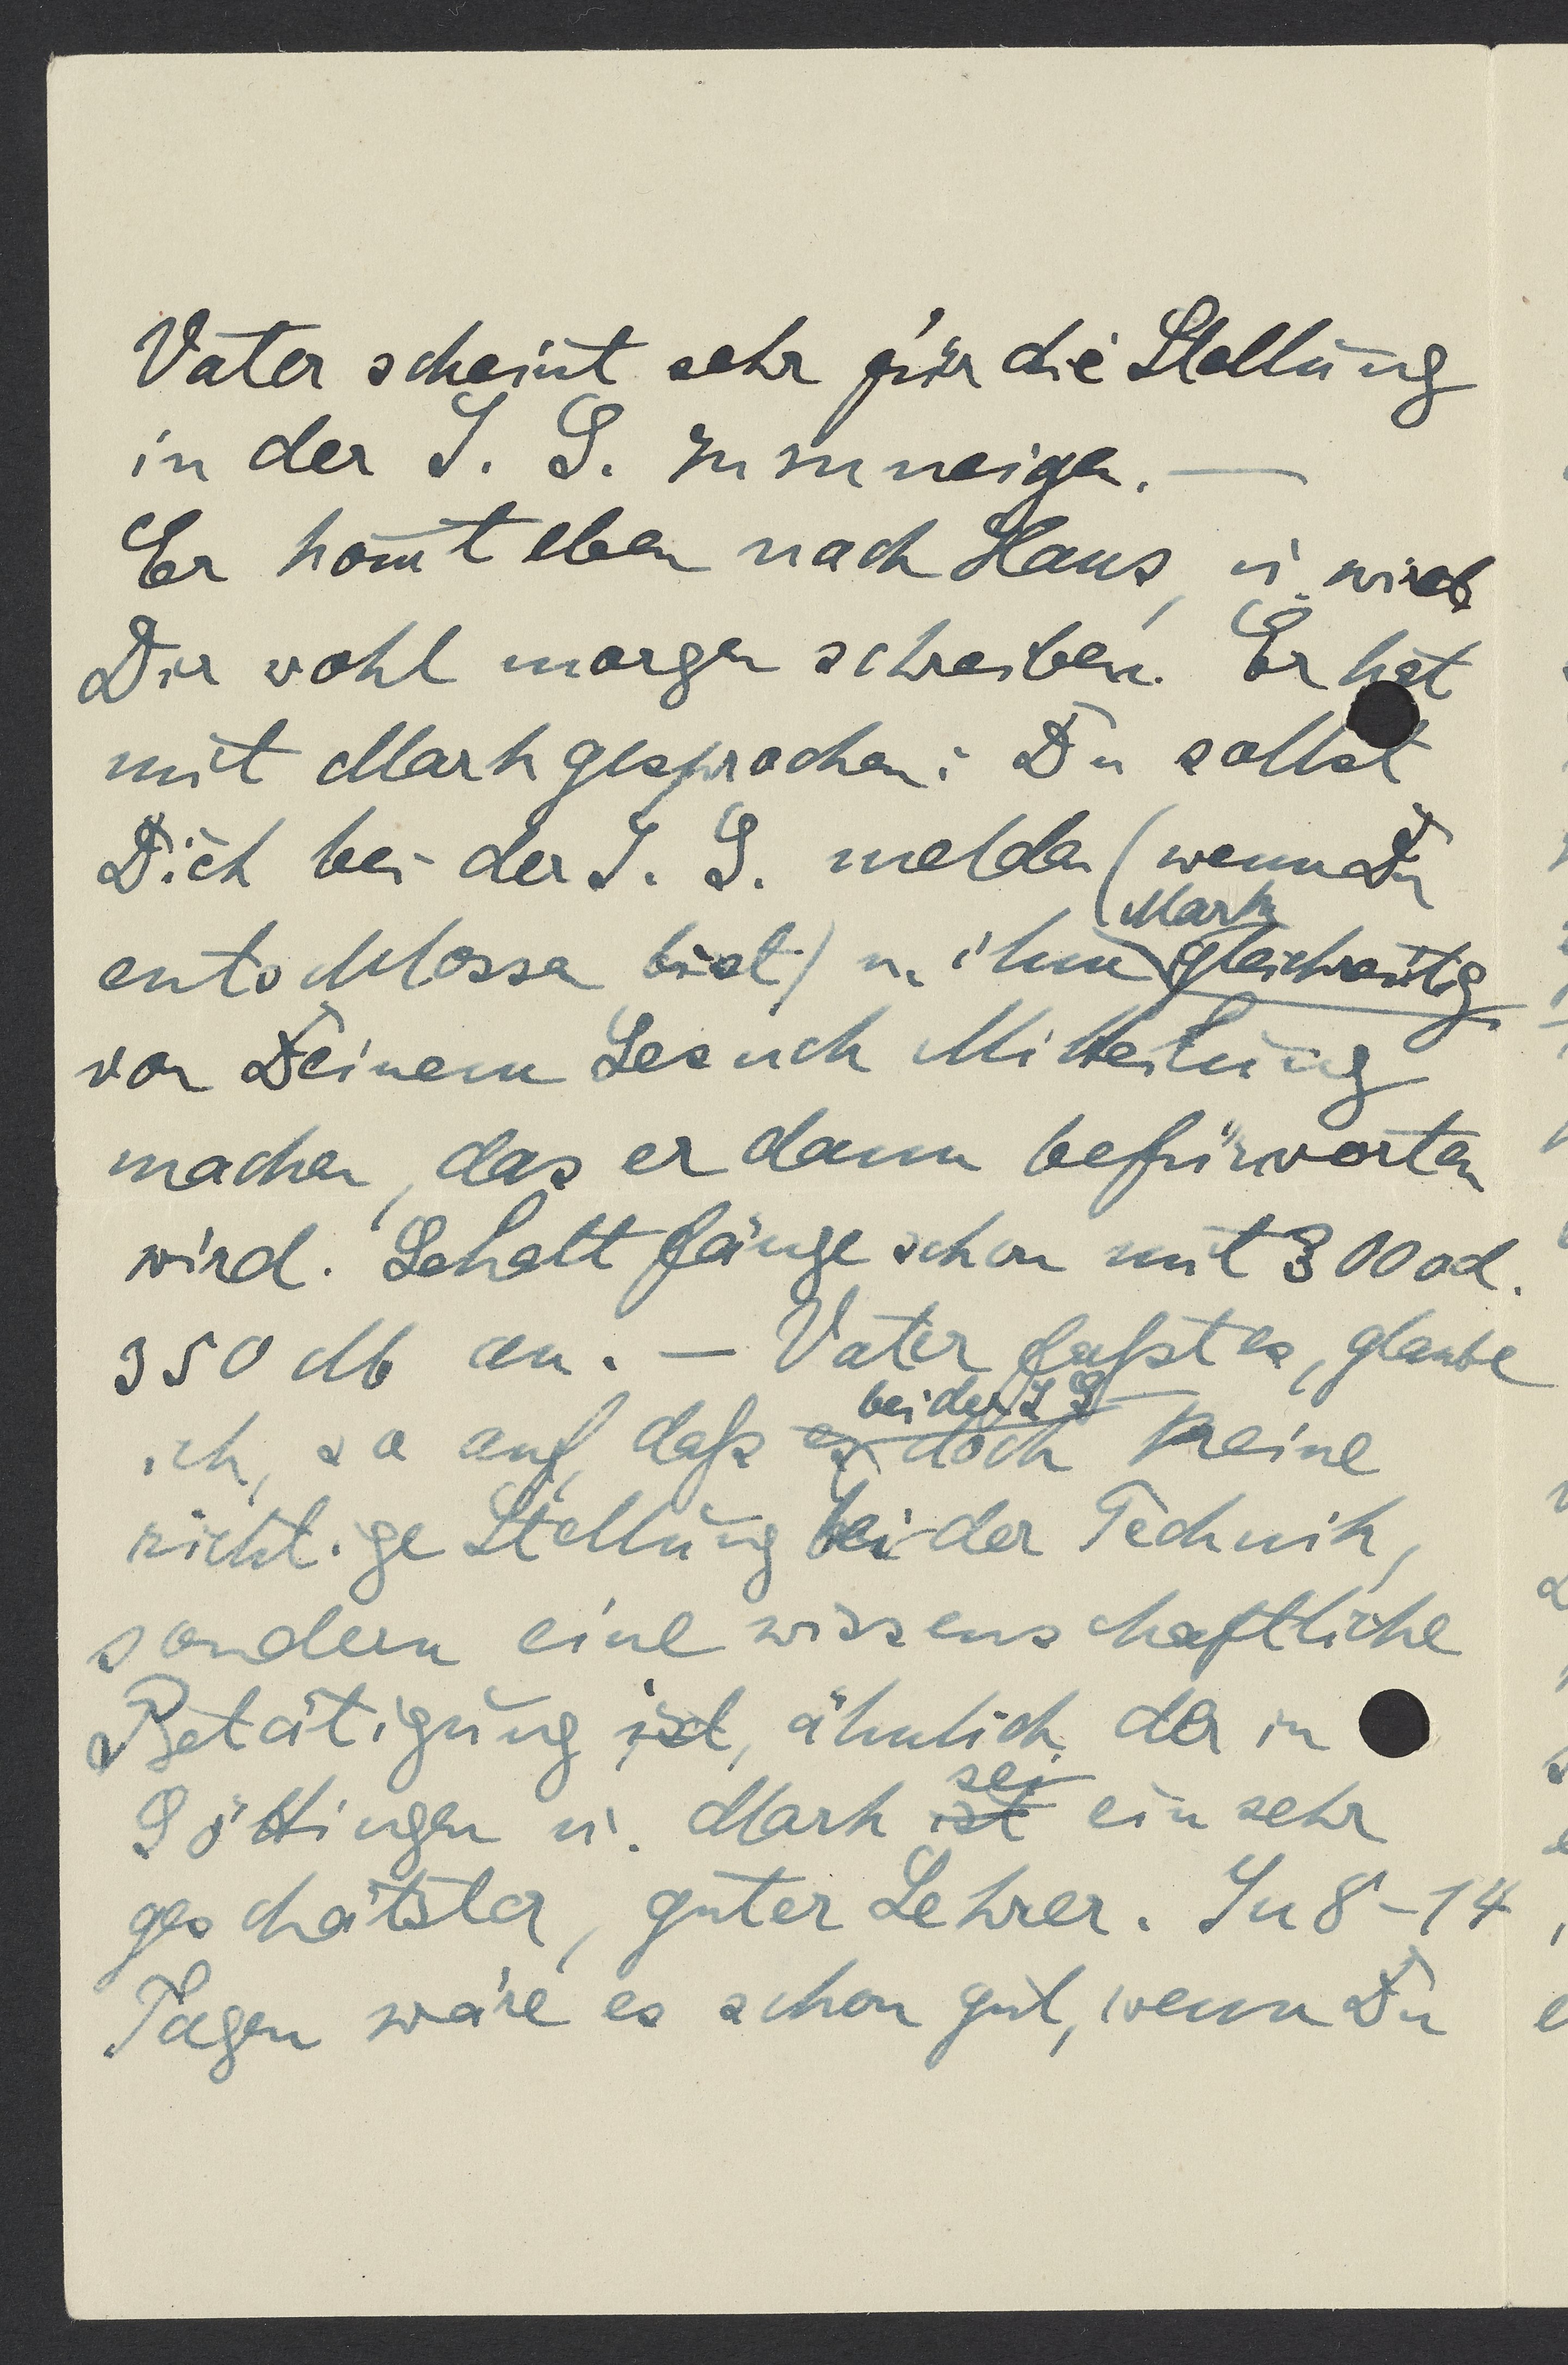 Vater scheint sehr für die Stellung
in der I. G. zu zuneigen. —
Er kom̄t eben nach Haus, u. wird
Dir wohl morgen schreiben. Er hat
mit Mark gesprochen: Du sollst
Dich bei der I. G. melden (wenn Du
entschlossen bist) u. ihm Mark gleichzeitig
von Deinem Gesuch Mitteilung
machen, das er dann befürworten
wird. Gehalt fänge schon mit 300 od.
350 M an. — Vater faßt es, glaube
ich, so auf, daß es bei der I G doch keine
richtige Stellung bei der Technik,
sondern eine wissenschaftliche
Betätigung ist, ähnlich der in
Göttingen u. Mark ist sei ein sehr
geschätzter, guter Lehrer. In 8-14
Tagen wäre es schon gut, wenn Du